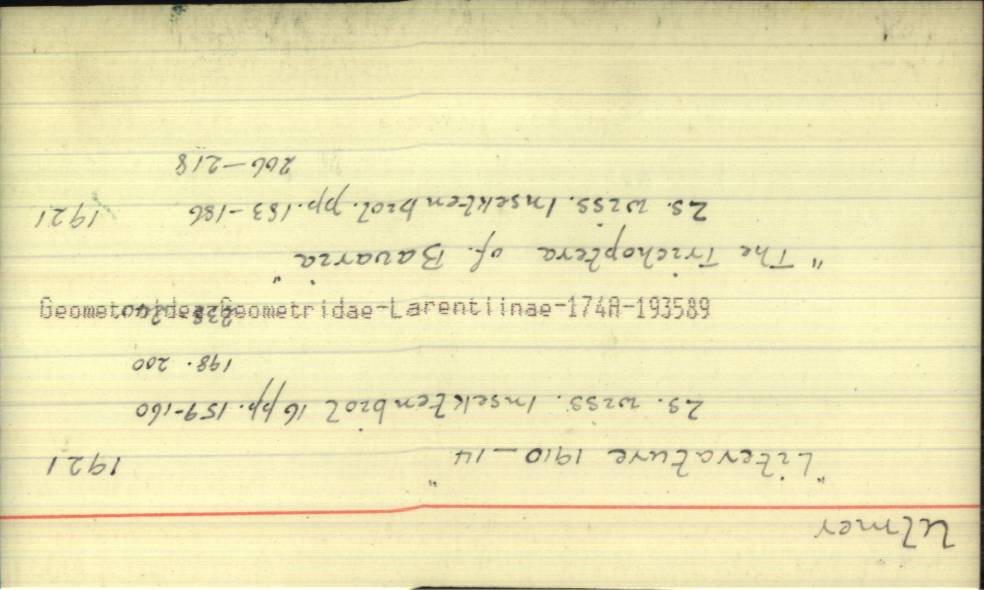 Ulmer
"Literature 1910-14" 1921
Zs. wiss. Insektenbiol 16 pp. 159-160
198. 200
238-240
"The Trichoptera of Bavaria"
Zs. wiss. Insektenbiol. pp. 183-186 1921
206-218
Geometroidea-Geometridae-Larentiinae-174A-193589